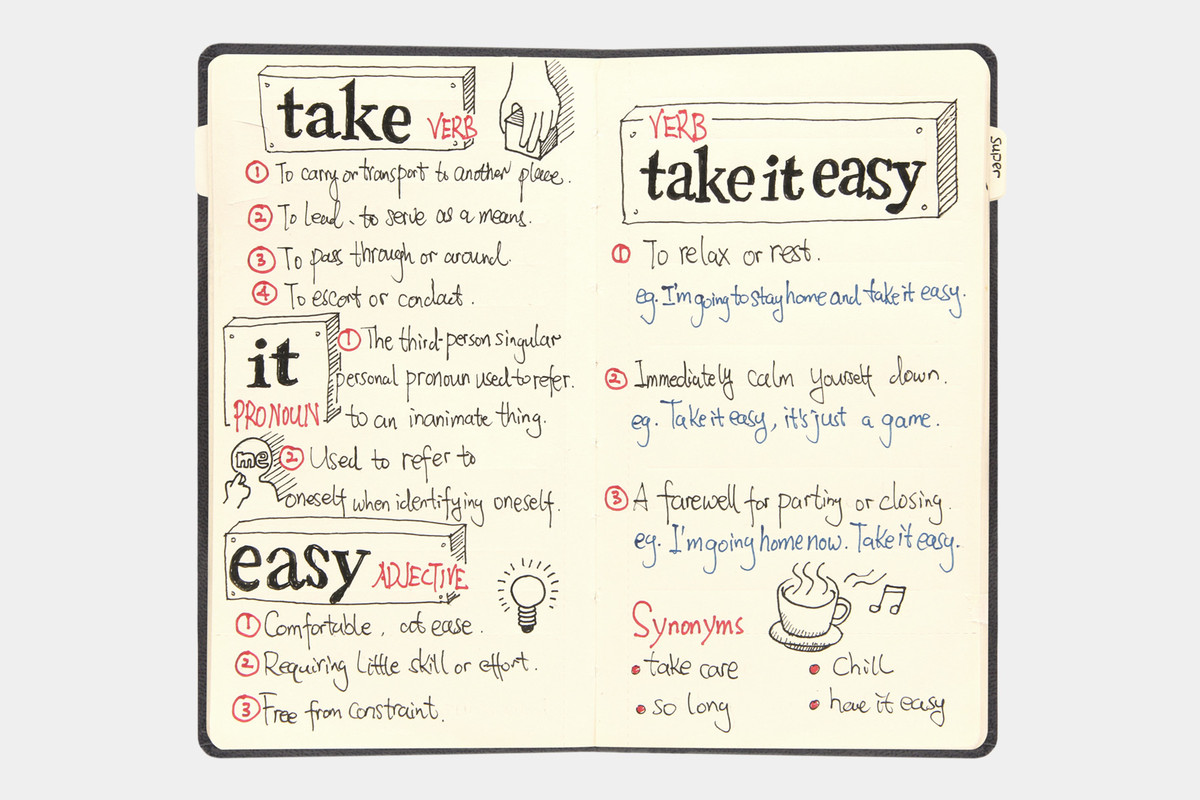 take VERB
① To carry or transport to another place.
② To lead, to serve as a means.
③ To pass through or around.
④ To escort or conduct.
it
PRONOUN
① The third-person singular
personal pronoun used to refer.
to an inanimate thing.
me
② Used to refer to
oneself when identifying oneself.
easy ADJECTIVE
① Comfortable, at ease.
② Requiring little skill or effort.
③ Free from constraint.
VERB
take it easy
① To relax or rest.
eg. I'm going to stay home and take it easy.
② Immediately calm yourself down.
eg. Take it easy, it's just a game.
③ A farewell for parting or closing.
eg. I'm going home now. Take it easy.
Synonyms
• take care
• Chill
• so long
• have it easy
super